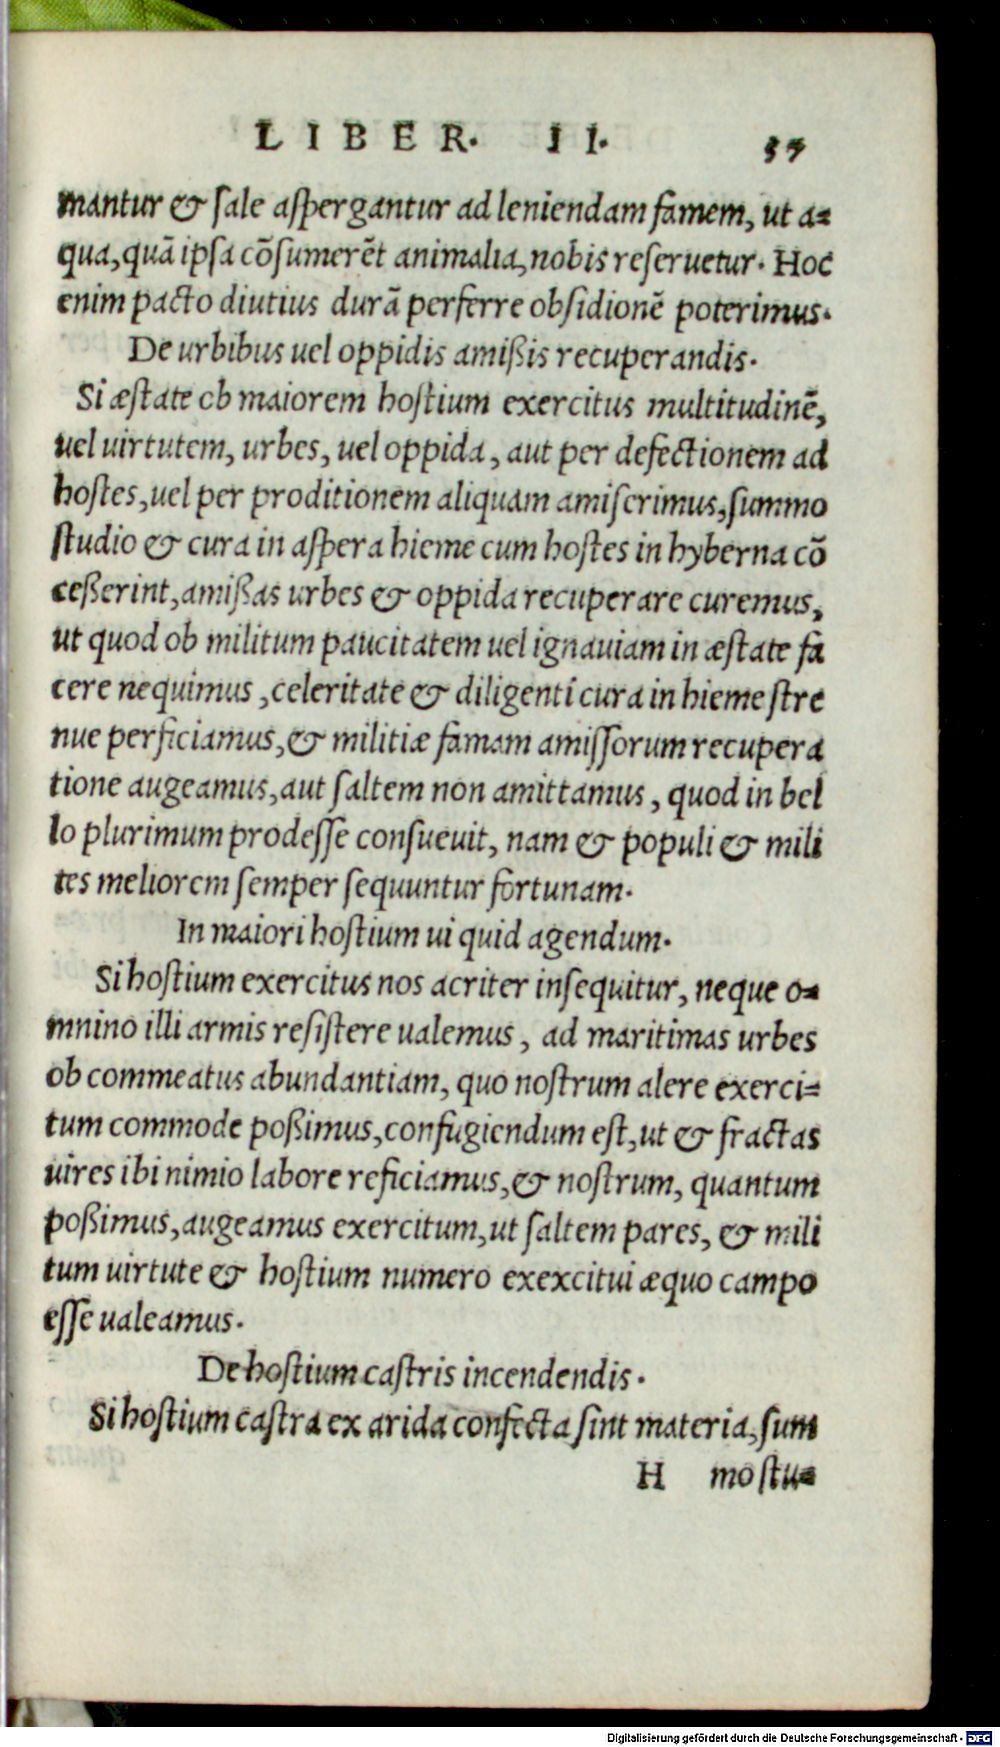 LIBER. II. 57
mantur & sale aspergantur ad leniendam famem, ut a=
qua, quã ipsa cõsumerẽt animalia, nobis reseruetur. Hoc
enim pacto diutius durã perferre obsidionẽ poterimus.
De urbibus uel oppidis amißis recuperandis.
Si æstate ob maiorem hostium exercitus multitudinẽ,
uel uirtutem, urbes, uel oppida, aut per defectionem ad
hostes, uel per proditionem aliquam amiserimus, summo
studio & cura in aspera hieme cum hostes in hyberna cõ
ceßerint, amißas urbes & oppida recuperare curemus,
ut quod ob militum paucitatem uel ignauiam in æstate fa
cere nequimus, celeritate & diligenti cura in hieme stre
nue perficiamus, & militiæ famam amissorum recupera
tione augeamus, aut saltem non amittamus, quod in bel
lo plurimum prodesse consueuit, nam & populi & mili
tes meliorem semper sequuntur fortunam.
In maiori hostium ui quid agendum.
Si hostium exercitus nos acriter insequitur, neque o=
mnino illi armis resistere ualemus, ad maritimas urbes
ob commeatus abundantiam, quo nostrum alere exerci=
tum commode poßimus, confugiendum est, ut & fractas
uires ibi nimio labore reficiamus, & nostrum, quantum
poßimus, augeamus exercitum, ut saltem pares, & mili
tum uirtute & hostium numero exexcitui æquo campo
esse ualeamus.
De hostium castris incendendis.
Si hostium castra ex arida confecta sint materia, sum
H mo stu=
Digitalisierung gefördert durch die Deutsche Forschungsgemeinschaft - DFG